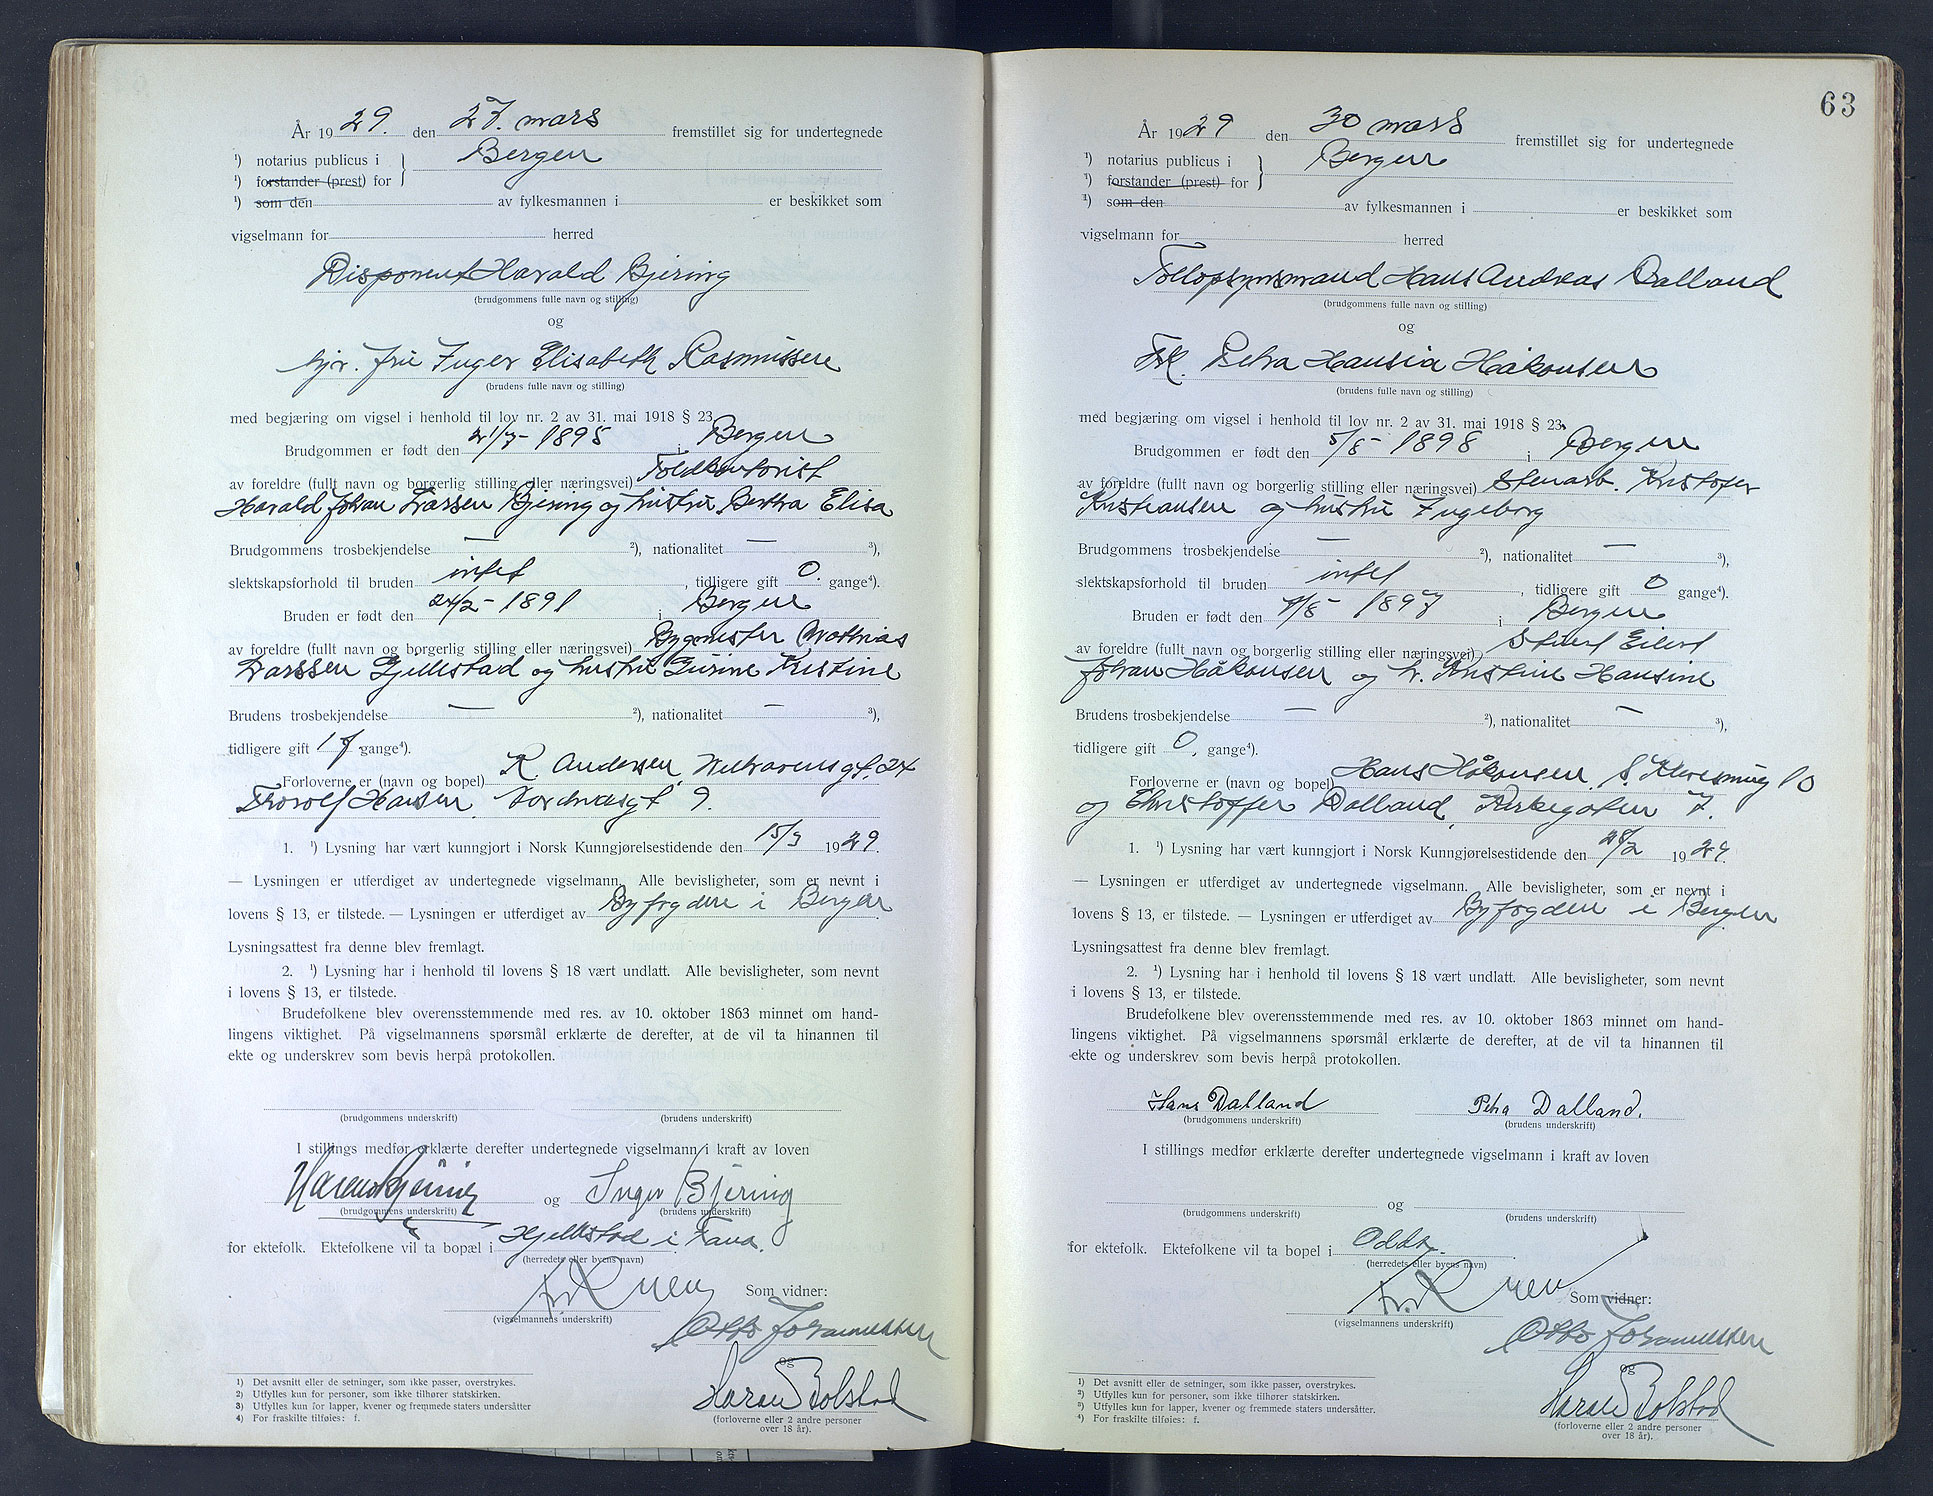 År 1929. den 27. mars fremstillet sig for undertegnede
¹) notarius publicus i Bergen
¹) forstander (prest) for
¹) som den av fylkesmannen i er beskikket som
vigselmann for herred
Disponent Harald Bjering
(brudgommens fulle navn og stilling)
og
hjv. fru Inger Elisabeth Rasmussen
(brudens fulle navn og stilling)
med begjæring om vigsel i henhold til lov nr. 2 av 31. mai 1918 § 23.
Brudgommen er født den 21/7- 1895 i Bergen
av foreldre (fullt navn og borgerlig stilling eller næringsvei) Toldkontorist
Harald Johan Larssen Bjering og hustru Bertha Elisa
Brudgommens trosbekjendelse — ²), nationalitet — ³),
slektskapsforhold til bruden intet , tidligere gift 0. gange⁴).
Bruden er født den 24/2- 1891 i Bergen
av foreldre (fullt navn og borgerlig stilling eller næringsvei) Bygmester Mathias
Larssen Hjellestad og hustru Gurine Kristine
Brudens trosbekjendelse — ²), nationalitet — ³),
tidligere gift 1 f gange⁴).
Forloverne er (navn og bopel) R. Andersen, Welhavensgt. 24
Thorolf Hansen, Nordnesgt 9.
1. ¹) Lysning har vært kunngjort i Norsk Kunngjørelsestidende den 15/3 1929.
— Lysningen er utferdiget av undertegnede vigselmann. Alle bevisligheter, som er nevnt i
lovens § 13, er tilstede. — Lysningen er utferdiget av Byfogden i Bergen
Lysningsattest fra denne blev fremlagt.
2. ¹) Lysning har i henhold til lovens § 18 vært undlatt. Alle bevisligheter, som nevnt
i lovens § 13, er tilstede.
Brudefolkene blev overensstemmende med res. av 10. oktober 1863 minnet om hand-
lingens viktighet. På vigselmannens spørsmål erklærte de derefter, at de vil ta hinannen til
ekte og underskrev som bevis herpå protokollen.
(brudgommens underskrift) (brudens underskrift)
I stillings medfør erklærte derefter undertegnede vigselmann i kraft av loven
Harald Bjering og Inger Bjering
(brudgommens underskrift) (brudens underskrift)
for ektefolk. Ektefolkene vil ta bopæl i Hjellestad i Fana.
(herredets eller byens navn)
Som vidner:
(vigselmannens underskrift)
Otto Johannessen
og
Harald Bolstad
(forloverne eller 2 andre personer
over 18 år).
1) Det avsnitt eller de setninger, som ikke passer, overstrykes.
2) Utfylles kun for personer, som ikke tilhører statskirken.
3) Utfylles kun for lapper, kvener og fremmede staters undersåtter
4) For fraskilte tilføies: f.
63
År 1929 den 30 mars fremstillet sig for undertegnede
¹) notarius publicus i Bergen
¹) forstander (prest) for
¹) som den av fylkesmannen i er beskikket som
vigselmann for herred
Tollopsynsmand Hans Andreas Dalland
(brudgommens fulle navn og stilling)
og
Frk. Petra Hansia Håkonsen
(brudens fulle navn og stilling)
med begjæring om vigsel i henhold til lov nr. 2 av 31. mai 1918 § 23.
Brudgommen er født den 5/8- 1898 i Bergen
av foreldre (fullt navn og borgerlig stilling eller næringsvei) Stenarb. Kristofer
Kristiansen og hustru Ingeborg
Brudgommens trosbekjendelse — ²), nationalitet — ³),
slektskapsforhold til bruden intet , tidligere gift 0 gange⁴).
Bruden er født den 4/8- 1897 i Bergen
av foreldre (fullt navn og borgerlig stilling eller næringsvei) Stuert Eilert
Johan Håkonsen og h. Kristine Hansine
Brudens trosbekjendelse — ²), nationalitet — ³),
tidligere gift 0. gange⁴).
Forloverne er (navn og bopel) Hans Håkonsen, 10
og Christoffer Dalland, Kirkegaten 7.
1. ¹) Lysning har vært kunngjort i Norsk Kunngjørelsestidende den 28/2 1929.
— Lysningen er utferdiget av undertegnede vigselmann. Alle bevisligheter, som er nevnt i
lovens § 13, er tilstede. — Lysningen er utferdiget av Byfogden i Bergen
Lysningsattest fra denne blev fremlagt.
2. ¹) Lysning har i henhold til lovens § 18 vært undlatt. Alle bevisligheter, som nevnt
i lovens § 13, er tilstede.
Brudefolkene blev overensstemmende med res. av 10. oktober 1863 minnet om hand-
lingens viktighet. På vigselmannens spørsmål erklærte de derefter, at de vil ta hinannen til
ekte og underskrev som bevis herpå protokollen.
Hans Dalland Petra Dalland.
(brudgommens underskrift) (brudens underskrift)
I stillings medfør erklærte derefter undertegnede vigselmann i kraft av loven
og
(brudgommens underskrift) (brudens underskrift)
for ektefolk. Ektefolkene vil ta bopel i Odda.
(herredets eller byens navn)
Som vidner:
(vigselmannens underskrift)
Otto Johannessen
og
Harald Bolstad
(forloverne eller 2 andre personer
over 18 år).
¹) Det avsnitt eller de setninger, som ikke passer, overstrykes.
²) Utfylles kun for personer, som ikke tilhører statskirken.
³) Utfylles kun for lapper, kvener og fremmede staters undersåtter.
⁴) For fraskilte tilføies: f.